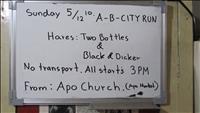 Sunday 5/12 10. A-B-CITY RUN
Hares: Two Bottles
&
Black & Dicker
No transport. All starts 3 PM
From: Apo Church. (Apo Market)